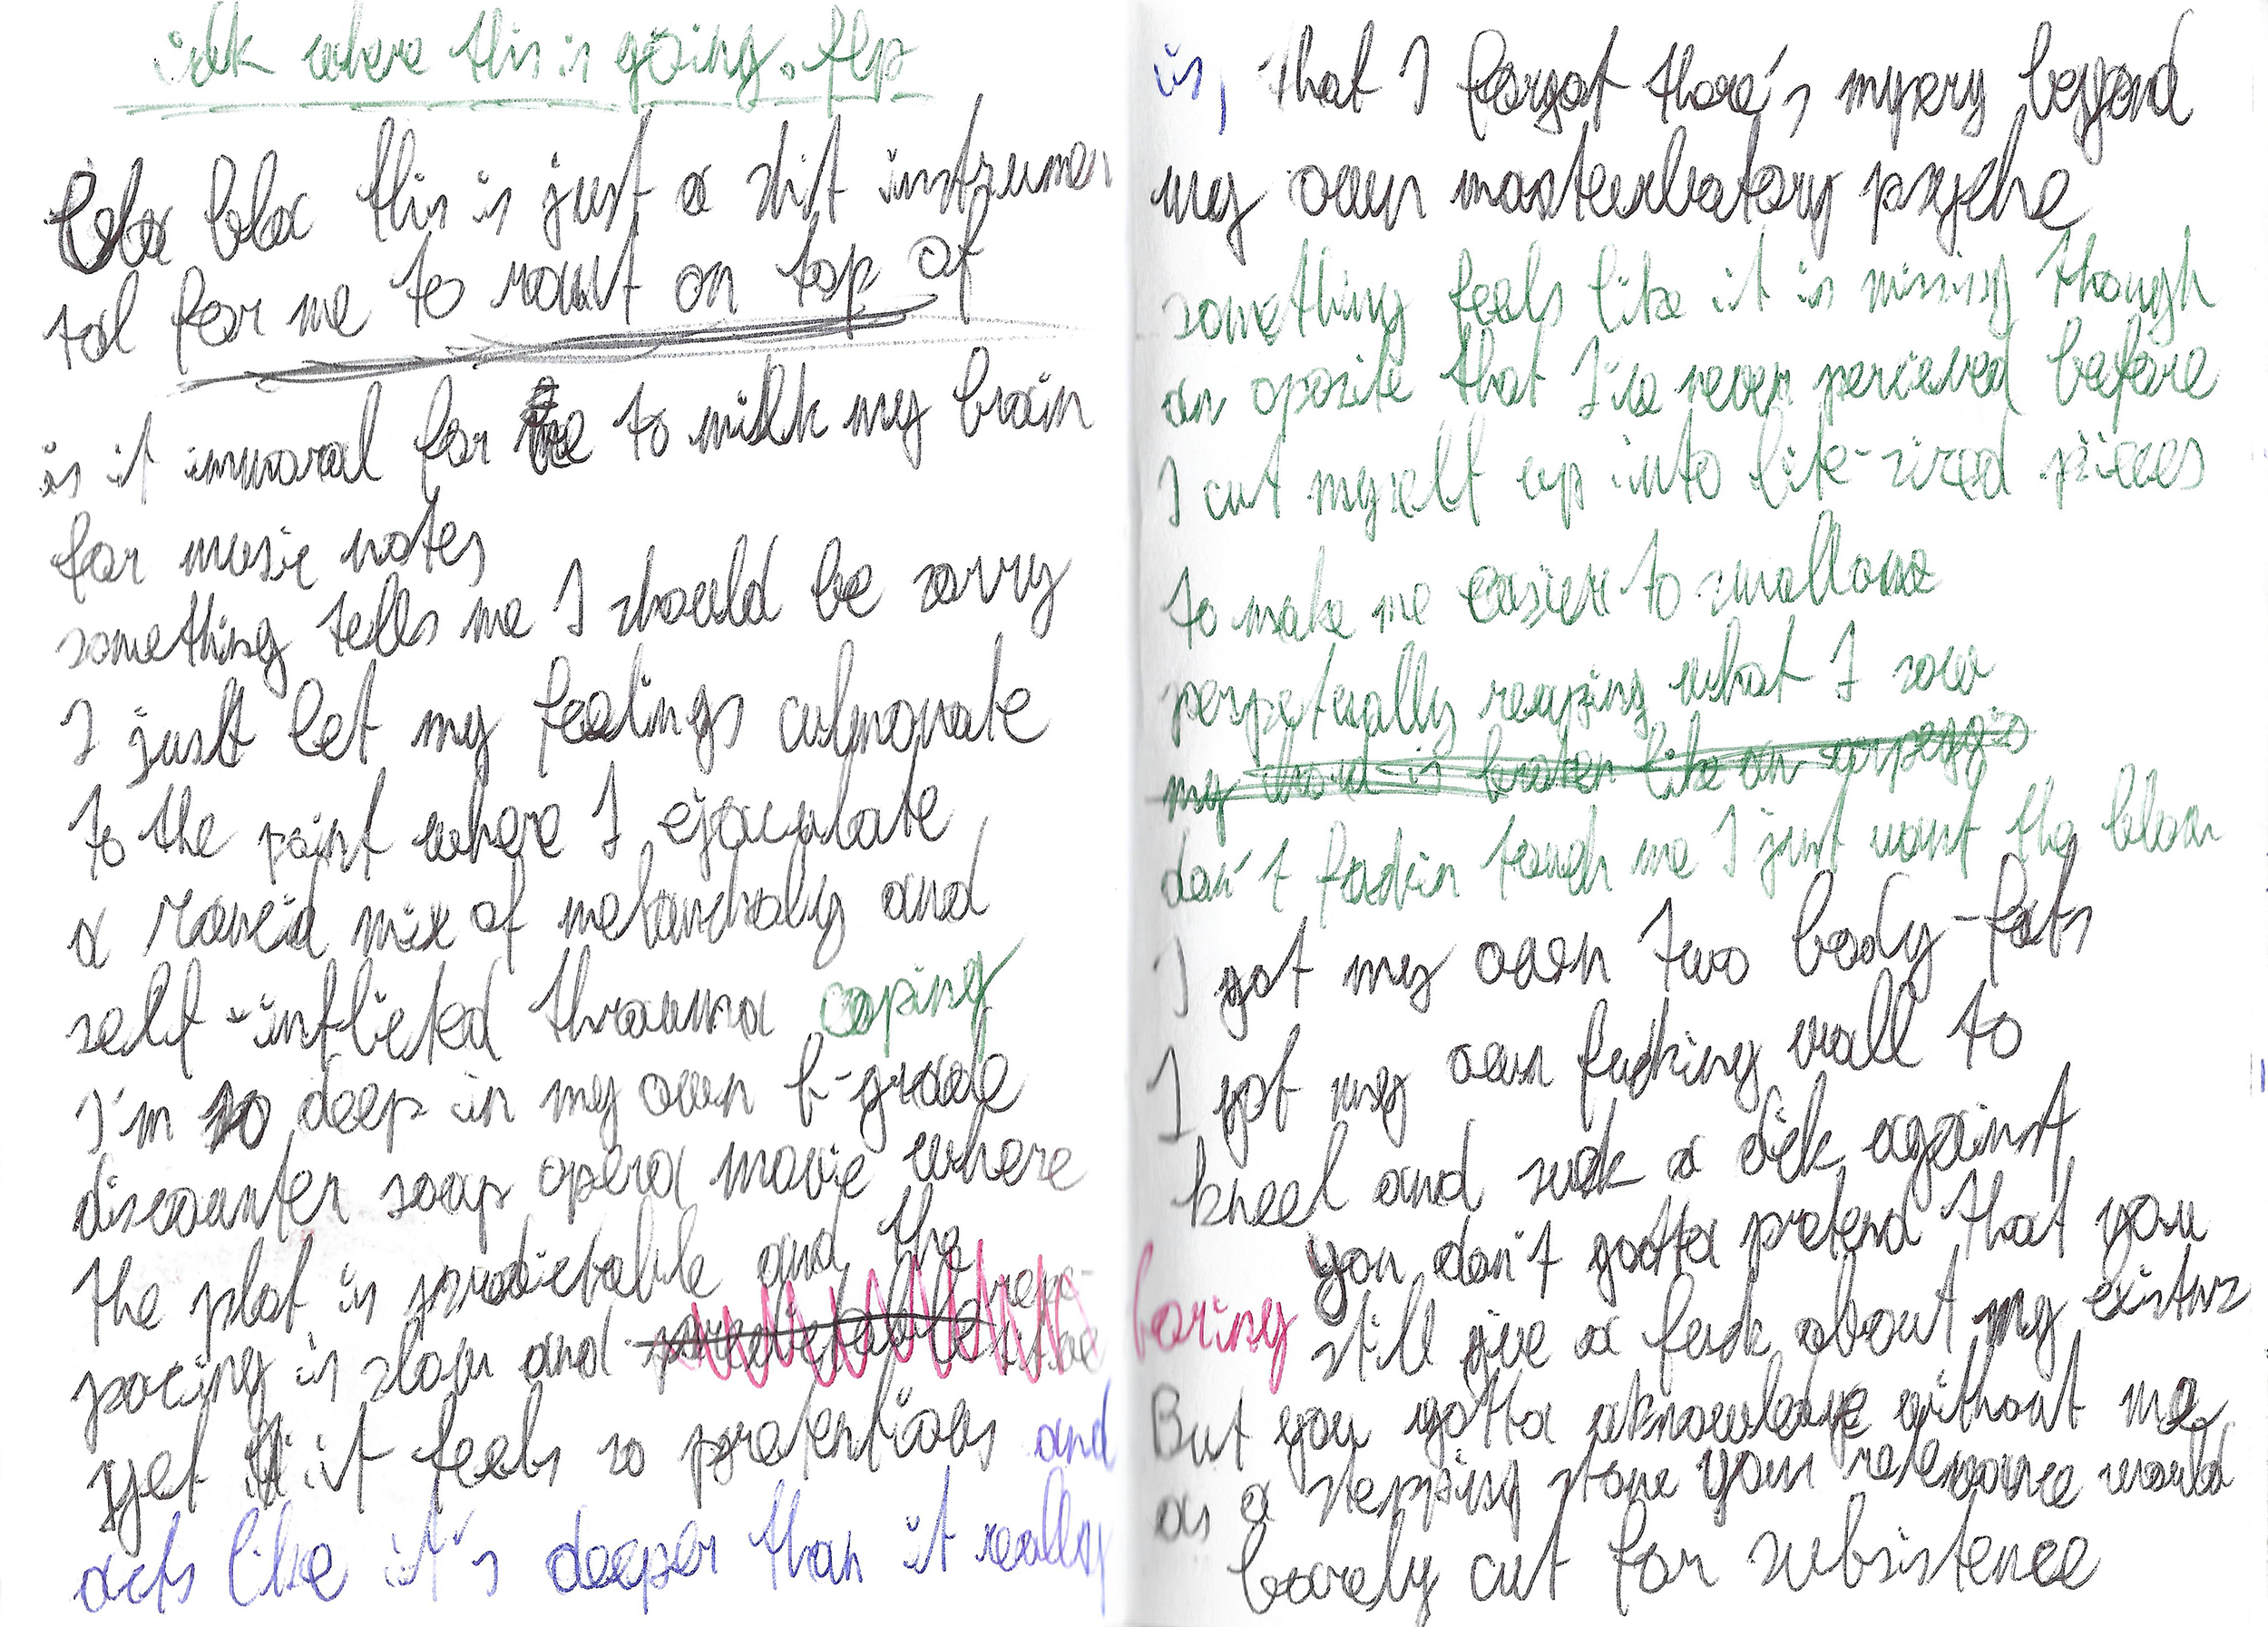 idk where this is going.flp
bla bla this is just a shit instrumen
tal for me to rant on top of
is it immoral for me to milk my brain
for music notes
something tells me I should be sorry
I just let my feelings culmonate
to the point where I ejaculate
a rancid mix of melancholy and
self-inflicted thrauma coping
I'm so deep in my own b-grade
discounter soap opera movie where
the plot is predictable and the
pacing is slow and predictable
yet it feels so pretentious and
acts like it's deeper than it really
is, that I forgot there's mysery beyond
my own masterbatory psyche
something feels like it is missing though
an oposite that I've never percieved before
I cut myself up into bite-sized pieces
to make me easier to swallow
perpetually reaping what I sow
my chord is broken like an arpeggio
don't fuckin touch me I just want the blow
I got my own two body-fats
I got my own fucking wall to
kneel and suck a dick against
you don't gotta pretend that you
boring still give a fuck about my existnz
But you gotta aknowledge without me
as a stepping stone your relevance would
barely cut for subsistence